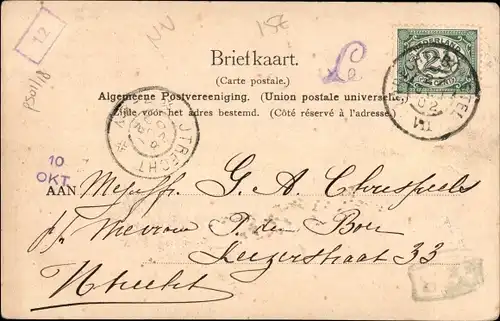 12
PS01/18
NV
15€
Briefkaart.
(Carte postale.)
Algemeene Postvereeniging. (Union postale universelle)
Zijde voor het adres bestemd. (Côté réservé à l'adresse)
NEDERLAND
2½
CENT
UTRECHT
10
OKT
AAN Mejuffr. G. A. Chrispeels
p/a Mevrouw P. den Boer
Keizerstraat 33
Utrecht